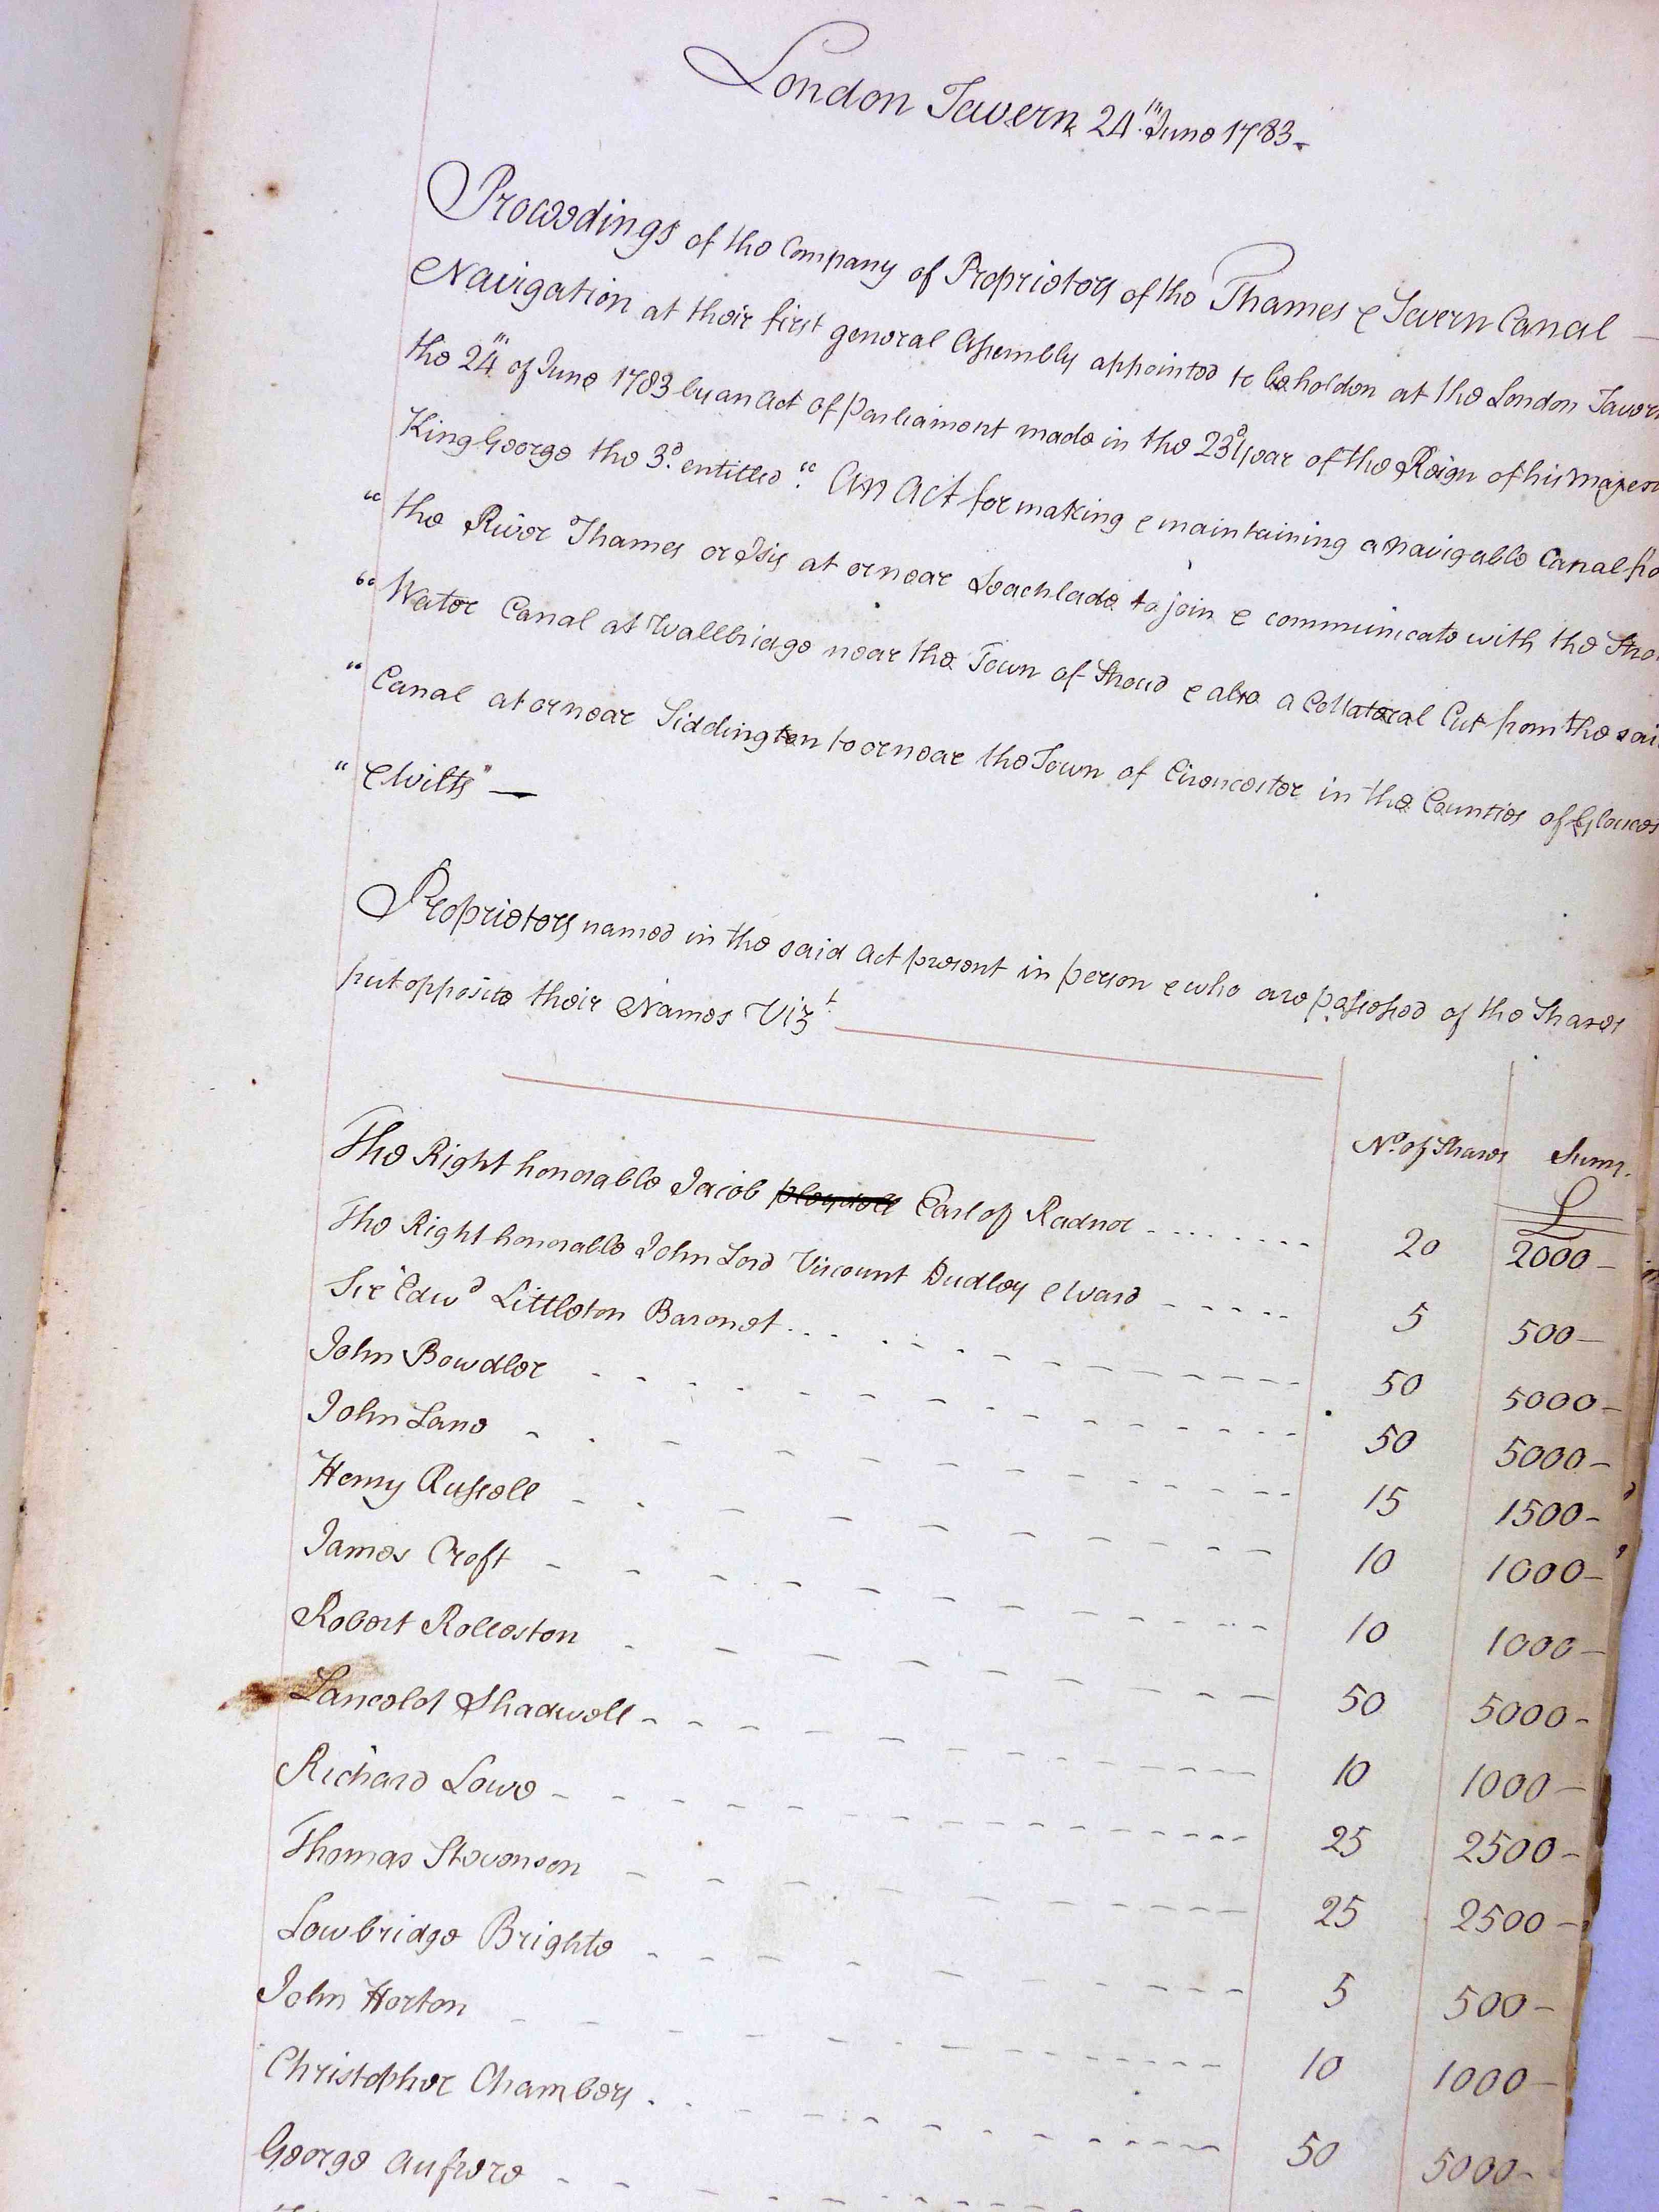 London Tavern 24.th June 1783.
Proceedings of the Company of Proprietors of the Thames & Severn Canal —
Navigation at their first general Assembly appointed to be holden at the London Tavern
the 24th of June 1783 by an Act of parliament made in the 23d year of the Reign of his
King George the 3d. entitled "An Act for making & maintaining a navigable Canal
"the River Thames or Isis at or near Leachlade to join & communicate with the
"Water Canal at Wallbridge near the Town of Stroud & also a Collateral Cut from the
"Canal at or near Siddington to or near the Town of Cirencester in the Counties of
"& Wilts" —
Proprietors named in the said Act present in person & who are possessed of the Shares
put opposite their Names Vizt
No. of Shares Sum.
£
The Right honorable Jacob Earl of Radnor 20 2000
The Right honorable John Lord Viscount Dudley & Ward 5 500
Sir Edwd Littleton Baronet 50 5000
John Bowdler 50 5000
John Lane 15 1500
Henry Russell 10 1000
James Croft 10 1000
Robert Rolleston 50 5000
Lancelot Shadwell 10 1000
Richard Lowe 25 2500
Thomas Stevenson 25 2500
Lowbridge Brighte 5 500
John Horton 10 1000
Christopher Chambers 50 5000
George Aufrere